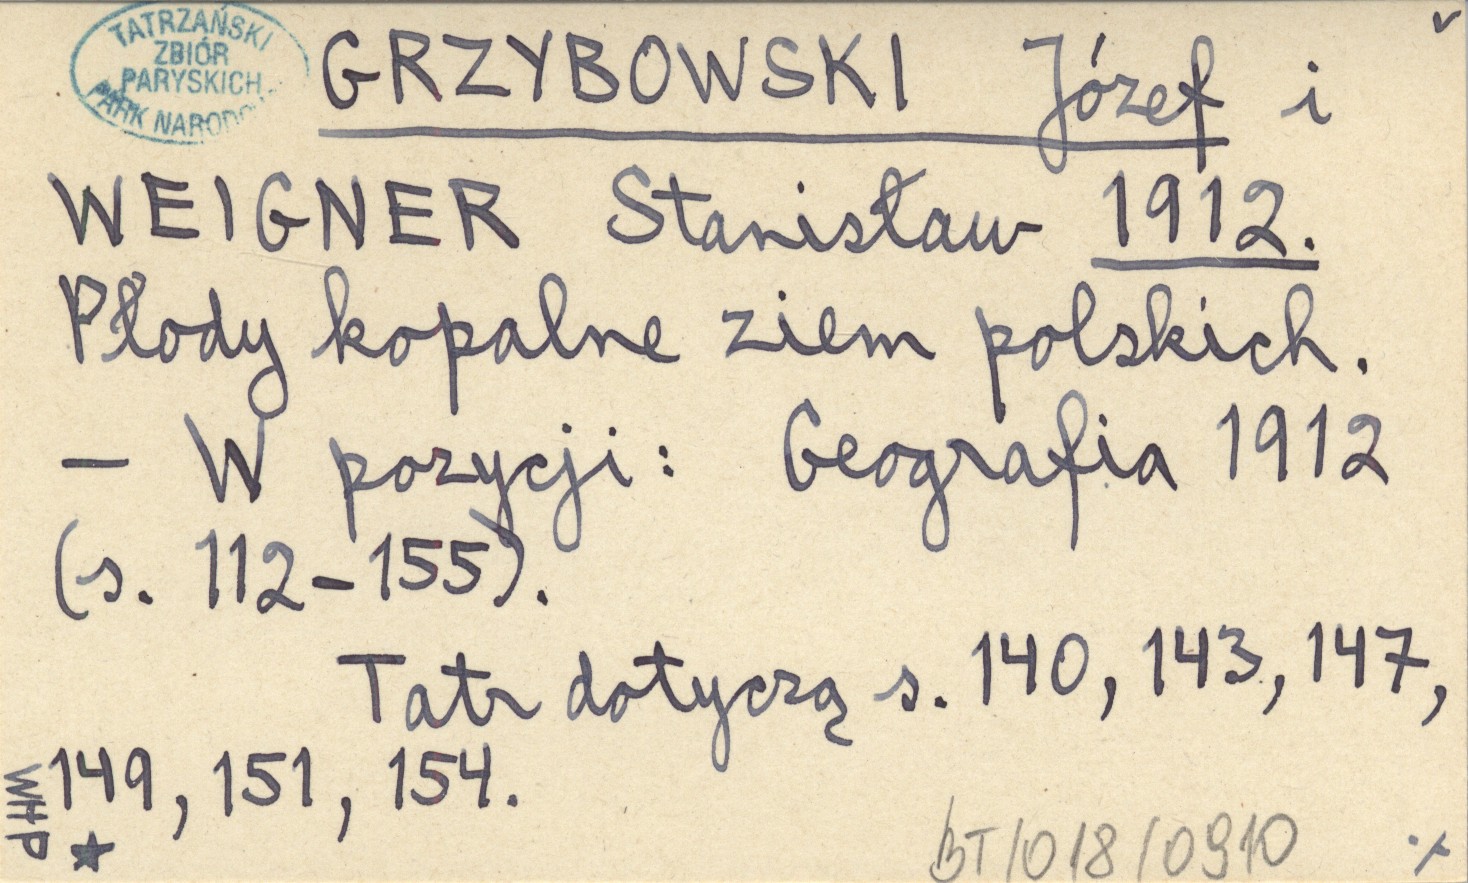 TATRZAŃSKI
ZBIÓR
PARYSKICH
PARK
GRZYBOWSKI Józef i
WEIGNER Stanisław 1912.
Płody kopalne ziem polskich.
– W pozycji: Geografia 1912
(s. 112–155).
Tatr dotyczą s. 140, 143, 147,
149, 151, 154.
WHP
BT/018/0910